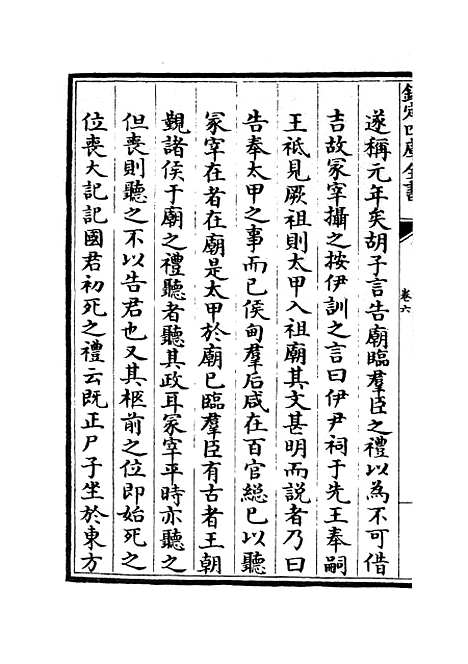 欽定四庫全書
卷六
遂稱元年矣胡子言告廟臨羣臣之禮以為不可借
吉故冢宰攝之按伊訓之言曰伊尹祠于先王奉嗣
王祗見厥祖則太甲入祖廟其文甚明而說者乃曰
告奉太甲之事而已侯甸羣后咸在百官緫已以聽
冢宰在者在廟是太甲於廟已臨羣臣有古者王朝
覲諸侯于廟之禮聽者聽其政耳冢宰平時亦聽之
但喪則聽之不以告君也又其柩前之位即始死之
位喪大記記國君初死之禮云既正尸子坐於東方